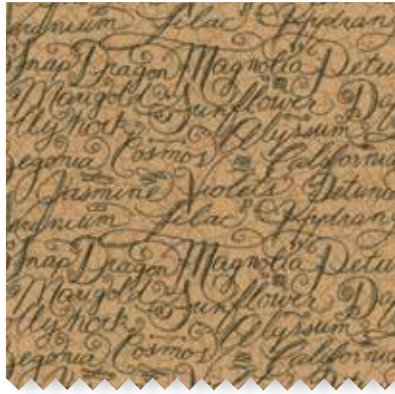 ranium Lilac Hydran
Snap Dragon Magnolia Petu
Marigold Sunflower Da
lly hock Alyssum
egonia Cosmos California
Jasmine Violets Petunia
ranium Lilac Hydran
Snap Dragon Magnolia Petu
Marigold Sunflower Da
lly hock Alyssum
egonia Cosmos California